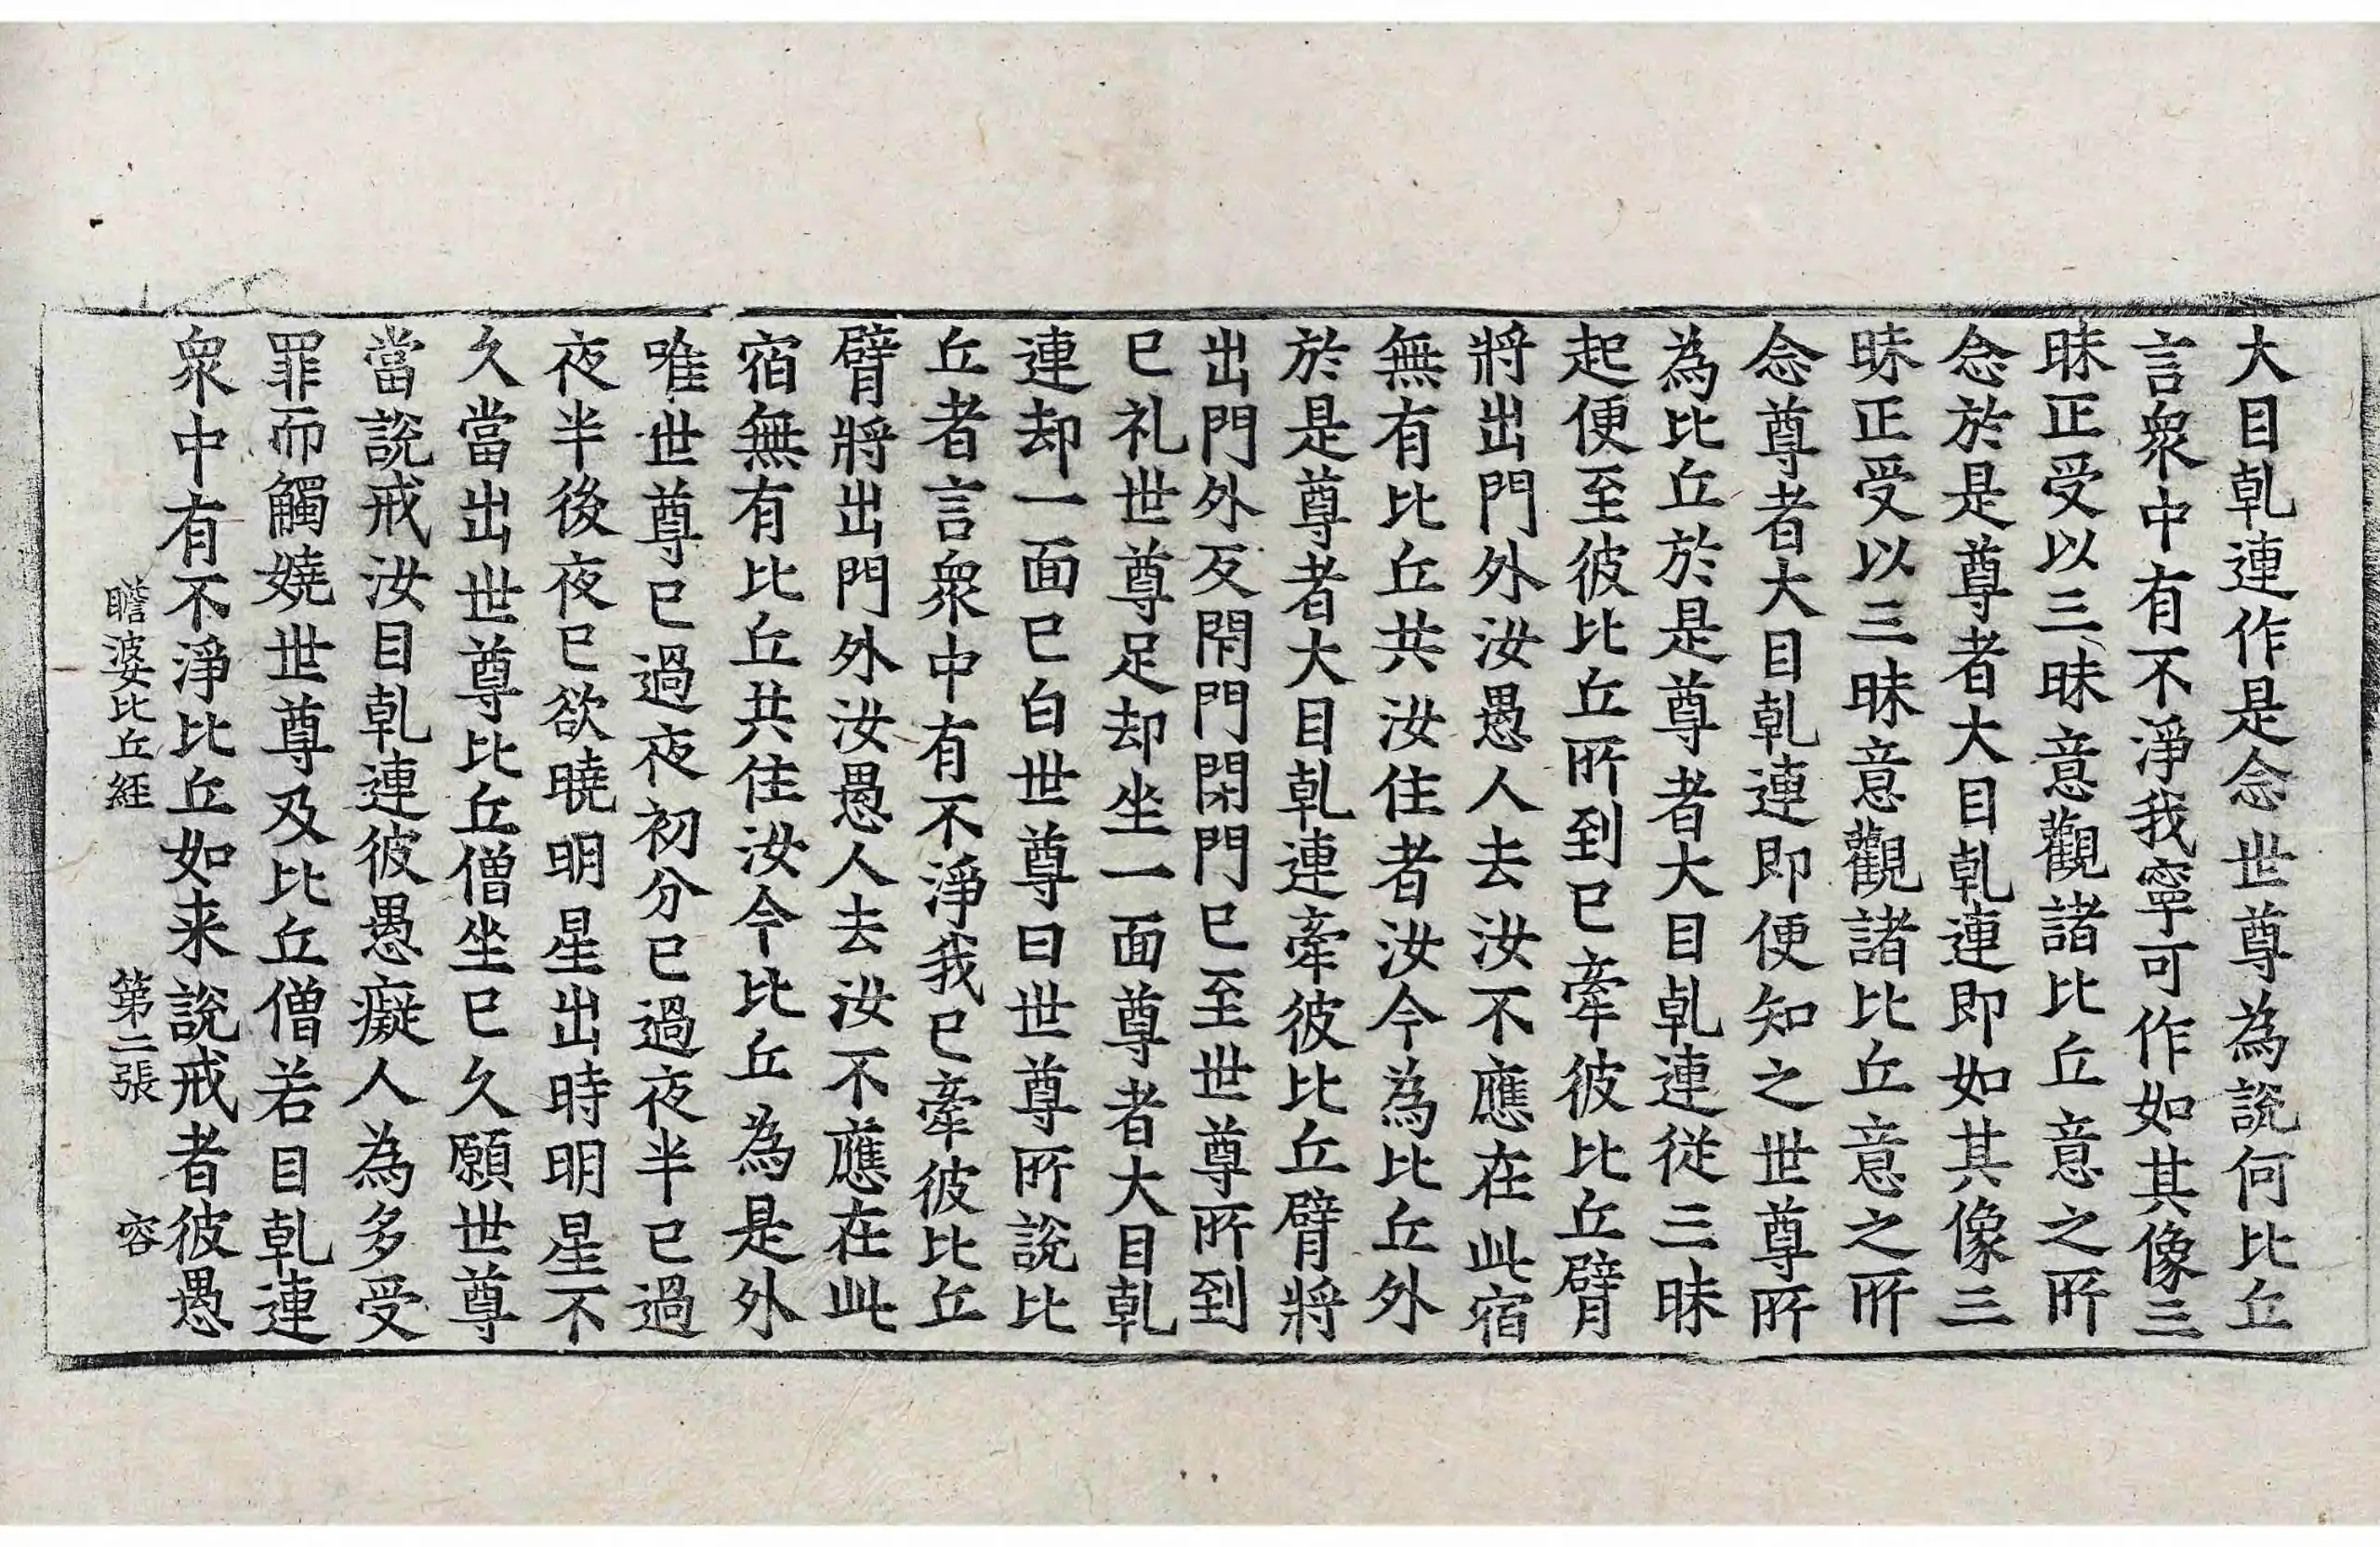 大目乹連作是念世尊為說何比丘
言衆中有不淨我寧可作如其像三
昧正受以三昧意觀諸比丘意之所
念於是尊者大目乹連即如其像三
昧正受以三昧意觀諸比丘意之所
念尊者大目乹連即便知之世尊所
為比丘於是尊者大目乹連從三昧
起便至彼比丘所到已牽彼比丘臂
將出門外汝愚人去汝不應在此宿
無有比丘共汝住者汝今為比丘外
於是尊者大目乹連牽彼比丘臂將
出門外反閇門閇門已至世尊所到
已礼世尊足却坐一面尊者大目乹
連却一面已白世尊曰世尊所說比
丘者言衆中有不淨我已牽彼比丘
臂將出門外汝愚人去汝不應在此
宿無有比丘共住汝今比丘為是外
唯世尊已過夜初分已過夜半已過
夜半後夜已欲曉明星出時明星不
久當出世尊比丘僧坐已久願世尊
當說戒汝目乹連彼愚癡人為多受
罪而觸嬈世尊及比丘僧若目乹連
衆中有不淨比丘如来說戒者彼愚
瞻婆比丘經 第二張 容